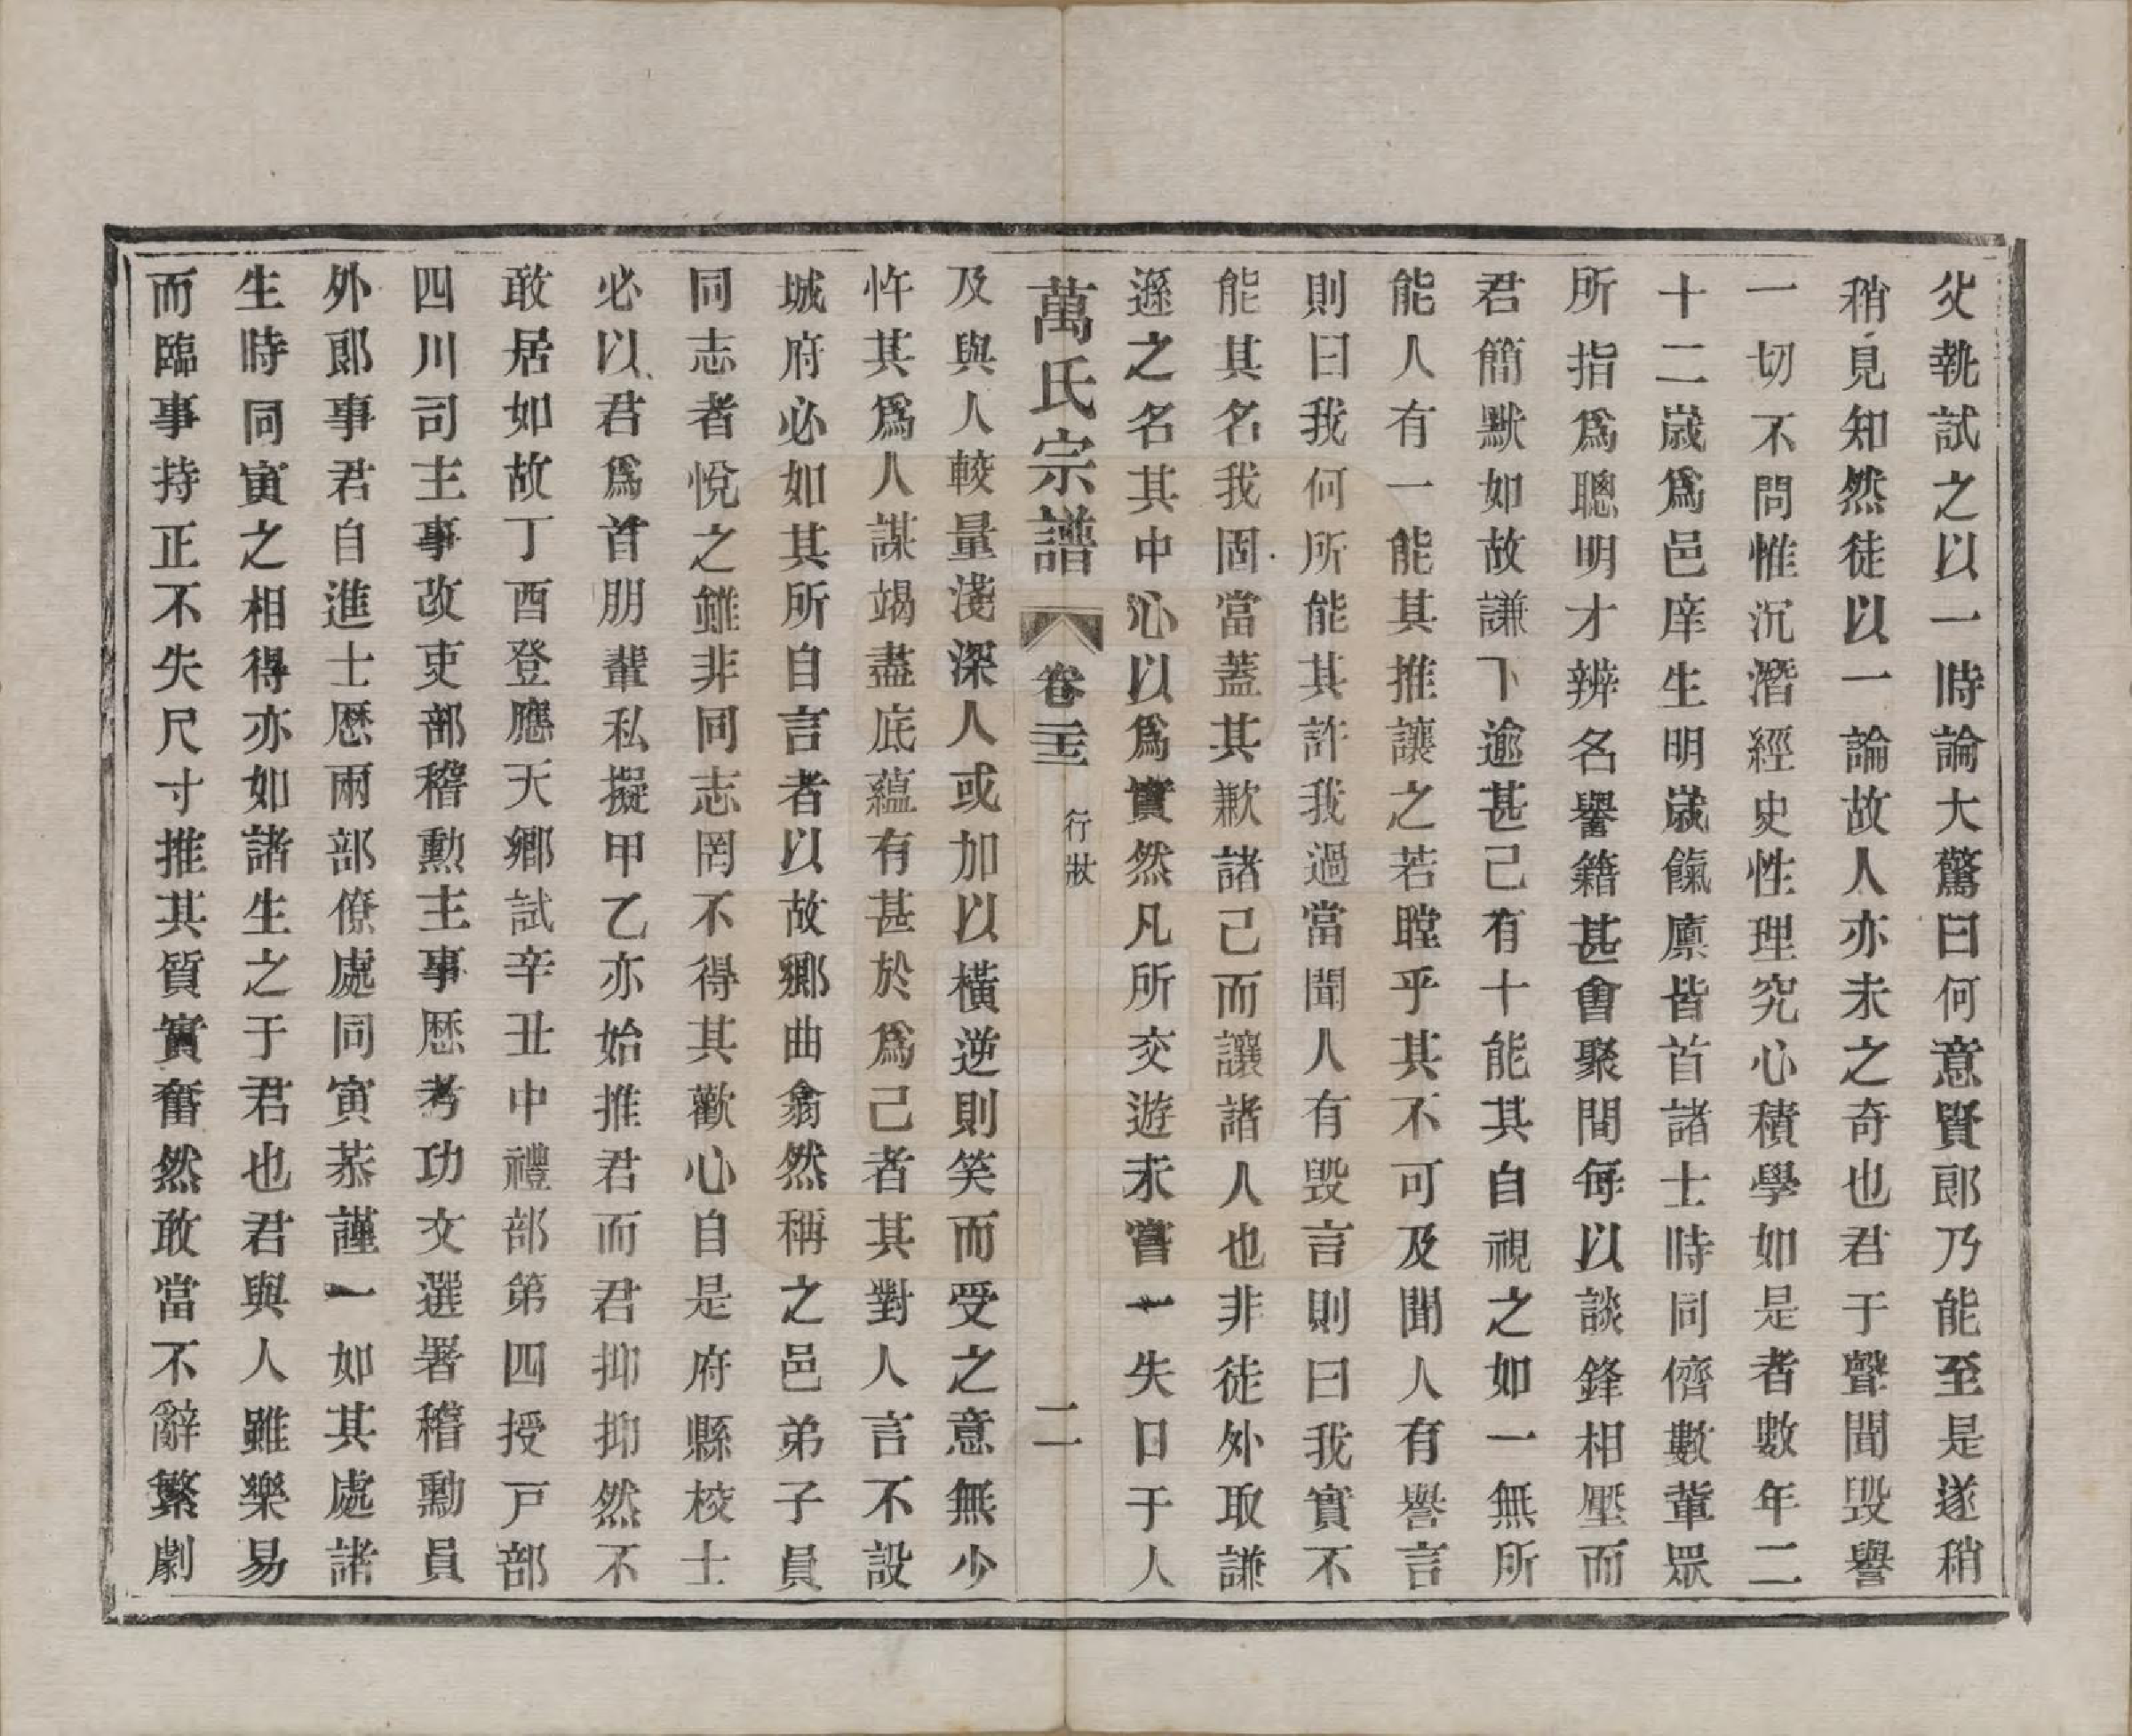 父執試之以一時論大驚曰何意賢郎乃能至是遂稍
稍見知然徒以一論故人亦未之奇也君于聲聞毀譽
一切不問惟沉潛經史性理究心積學如是者數年二
十二歲爲邑庠生明歲餼廪皆首諸士時同儕數輩眾
所指爲聰明才辨名譽籍甚會聚間每以談鋒相壓而
君簡默如故謙下逾甚己有十能其自視之如一無所
能人有一能其推讓之若瞠乎其不可及聞人有譽言
則曰我何所能其許我過當聞人有毀言則曰我實不
能其名我固當蓋其歉諸己而讓諸人也非徒外取謙
遜之名其中心以爲實然凡所交遊未嘗一失口于人
萬氏宗譜 卷二十三 行狀 二
及與人較量淺深人或加以橫逆則笑而受之意無少
忤其爲人謀竭盡底蘊有甚於爲己者其對人言不設
城府必如其所自言者以故鄉曲翕然稱之邑弟子員
同志者悅之雖非同志罔不得其歡心自是府縣校士
必以君爲首朋輩私擬甲乙亦始推君而君抑抑然不
敢居如故丁酉登應天鄉試辛丑中禮部第四授戸部
四川司主事改吏部稽勳主事歷考功文選署稽勳員
外郎事君自進士歷兩部僚處同寅恭謹一如其處諸
生時同寅之相得亦如諸生之于君也君與人雖樂易
而臨事持正不失尺寸推其質實奮然敢當不辭繁劇